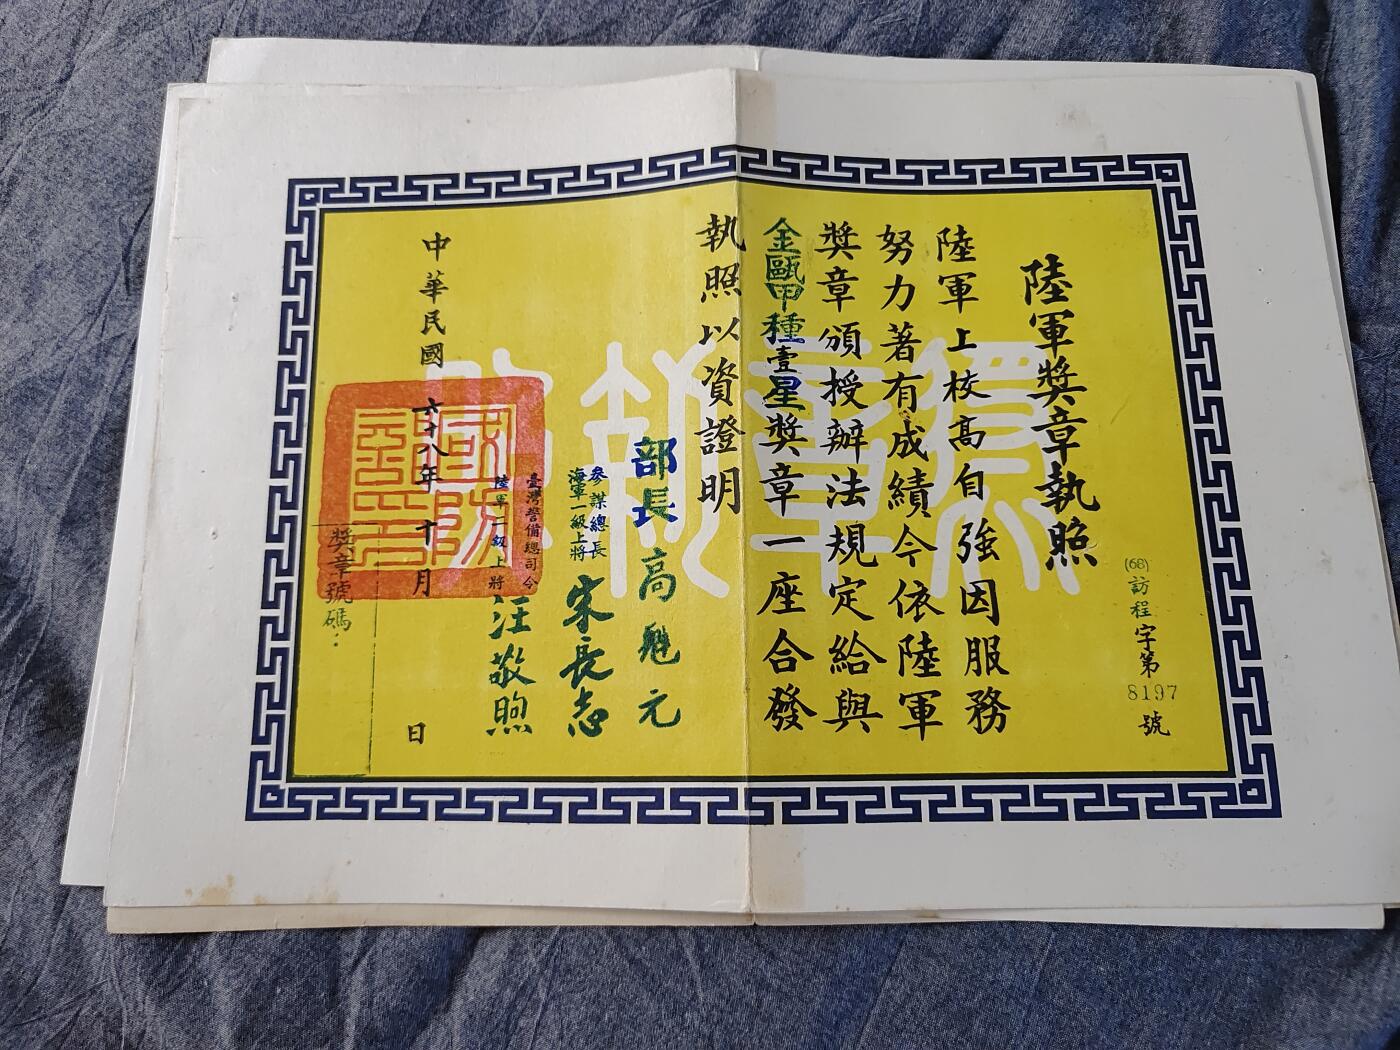 陸軍獎章執照
(68)訪程字第8197號
陸軍上校高自強因服務
努力著有成績今依陸軍
獎章頒授辦法規定給與
金甌甲種壹星獎章一座合發
執照以資證明
部長高魁元
參謀總長
海軍一級上將
宋長志
臺灣警備總司令
陸軍二級上將
汪敬煦
中華民國六十八年十月日
獎章號碼：